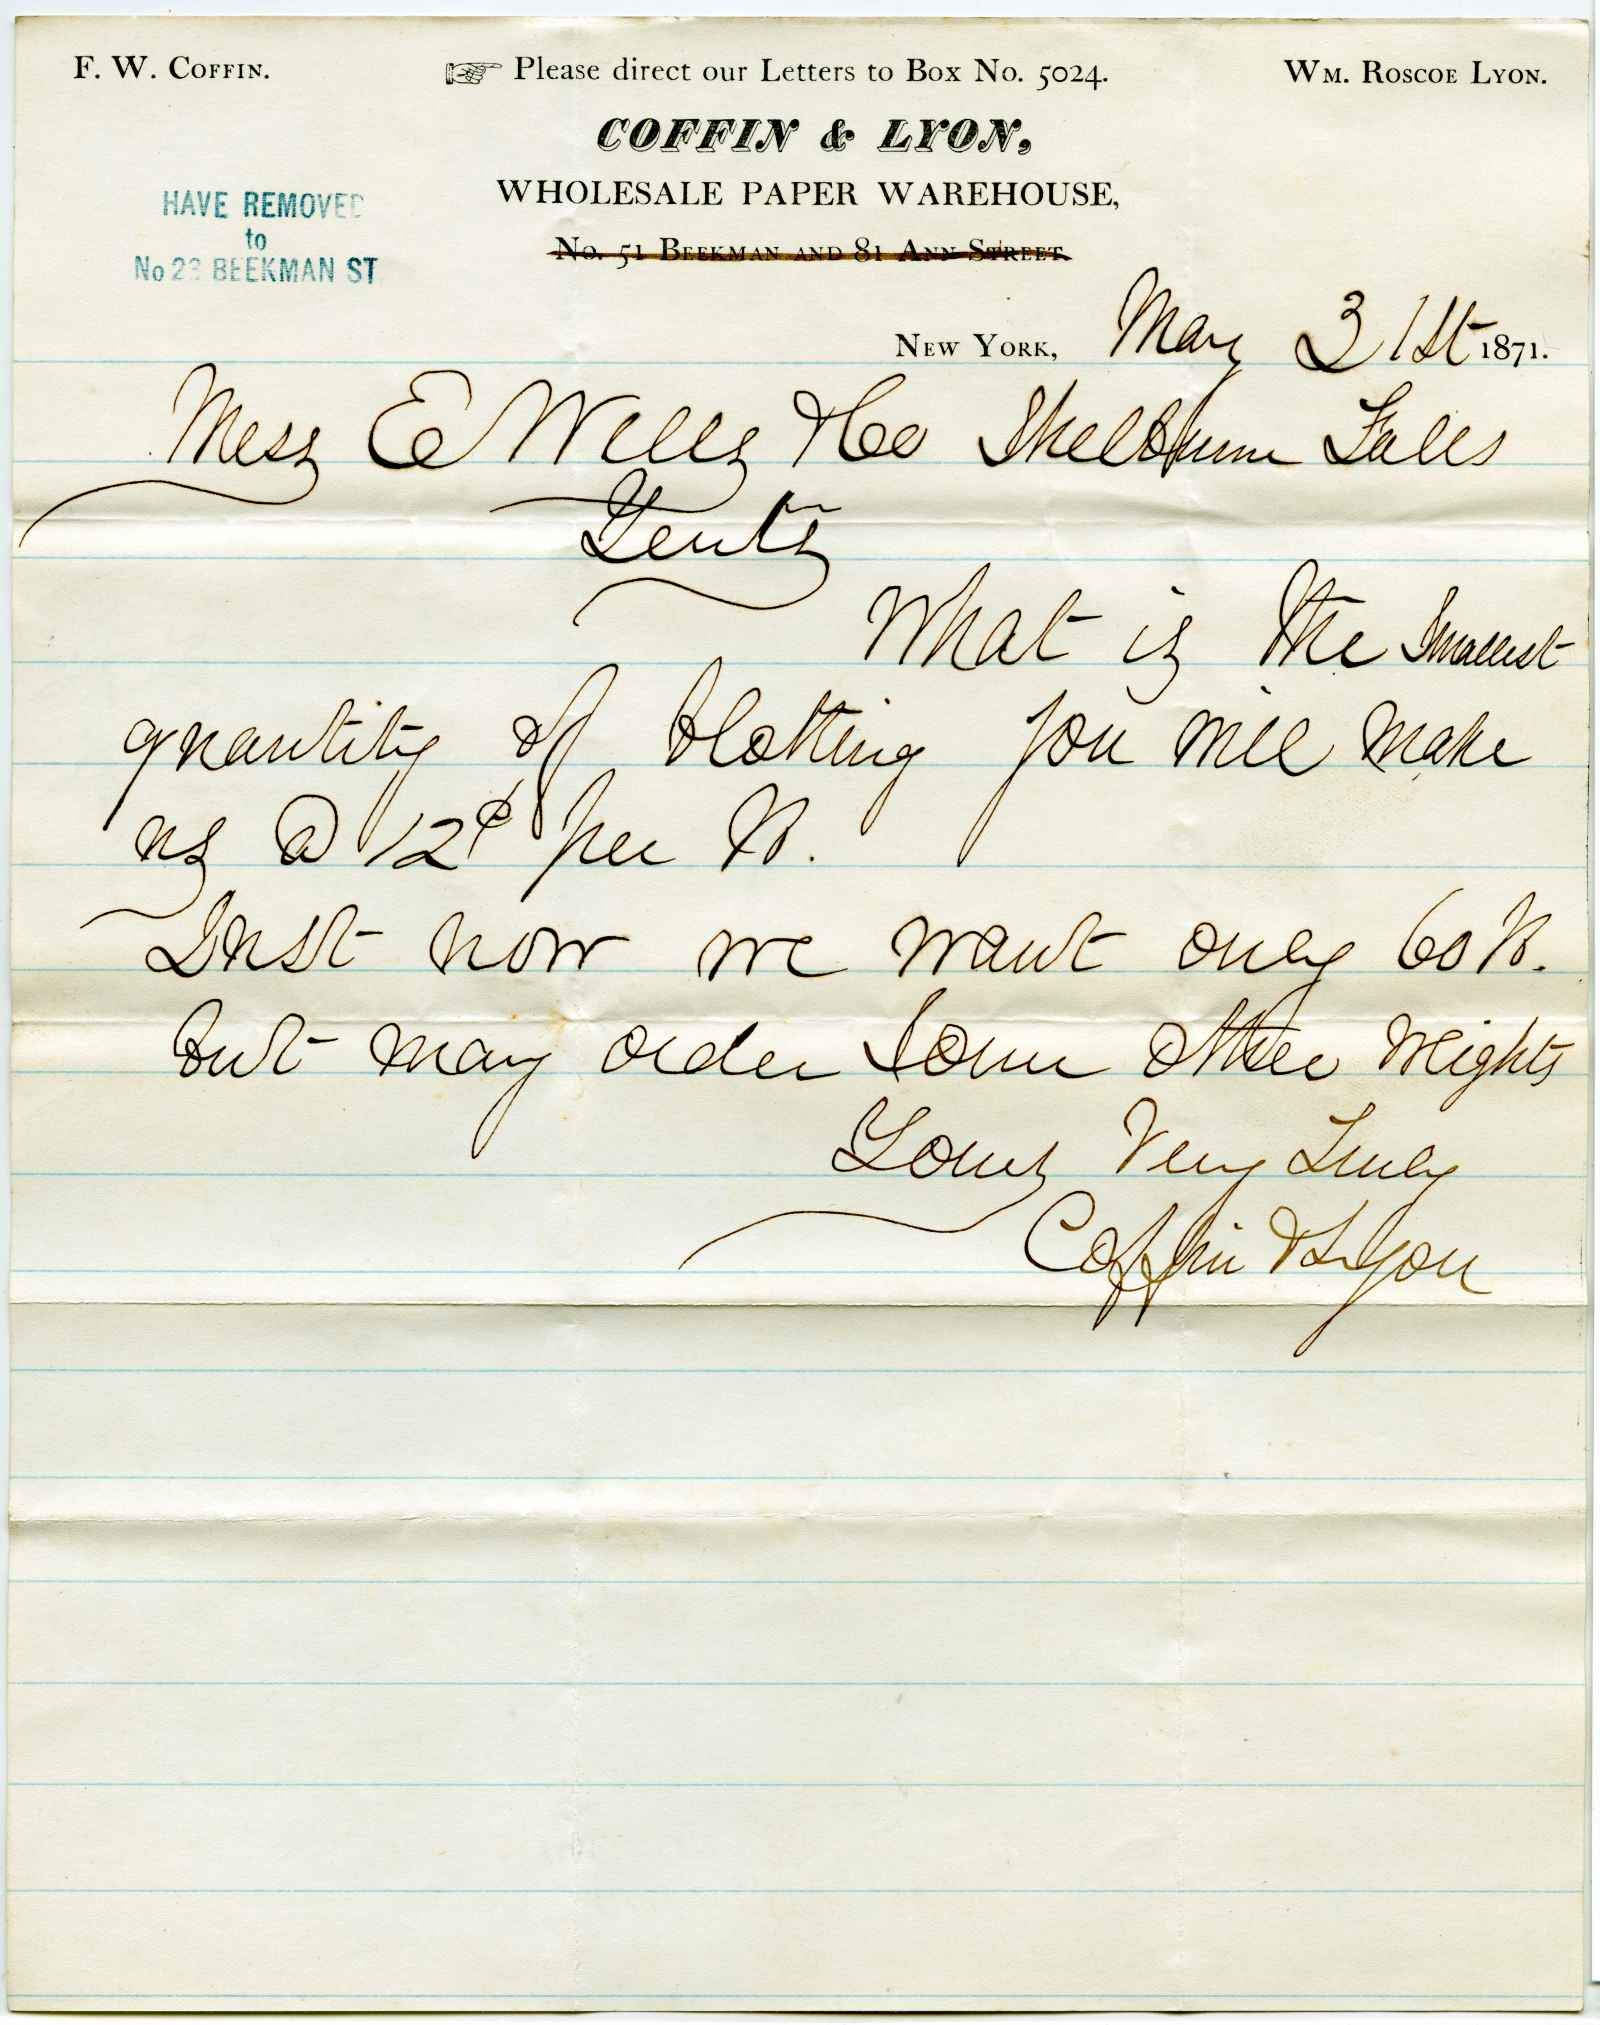 F. W. Coffin. Please direct our Letters to Box No. 5024. Wm. Roscoe Lyon.
COFFIN & LYON,
WHOLESALE PAPER WAREHOUSE,
HAVE REMOVED
to
No 23 BEEKMAN ST
No. 51 Beekman and 81 Ann Street.
New York, May 31st 1871.
Mess E Wells & Co Shelburne Falls
Gents
What is the Smallest
quantity of blotting you will make
us @ 12¢ per lb.
Just now we want only 60 lb.
but may order some other weights
Yours Very Truly
Coffin & Lyon